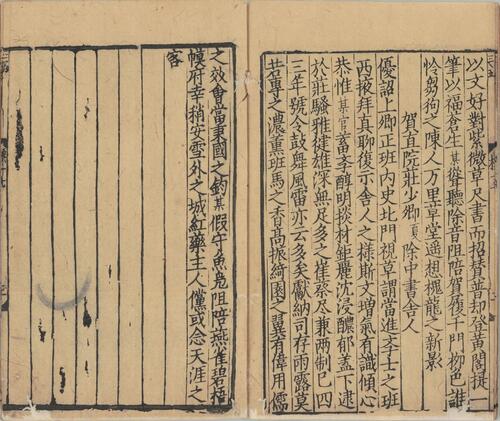 以文好對紫微草尺書而招賛普却登黃閣提一
筆以福蒼生某聳聽除音阻陪賀履千門柳色誰
怜芻狗之陳人万里草堂遥想槐龍之新影
賀直院莊少卿夏除中書舍人
優詔上卿正班内史北門視草謂當進斈士之班
西掖拜真聊復示舍人之様斯文增氣有識傾心
恭惟某官蓄斈醇明掞材鉅麗沈浸醲郁盖下逮
於莊騷雅健雄深無足多之崔蔡尽兼兩制已四
三年號令鼓舞風雷亦云多矣獻納司存雨露莫
若專之濃薫班馬之香髙振綺園之翼有偉用儒
之效會當秉國之鈞某假守魚凫阻陪燕雀碧梧
幙府幸稍安雪外之城紅藥主人儻或念天涯之
客